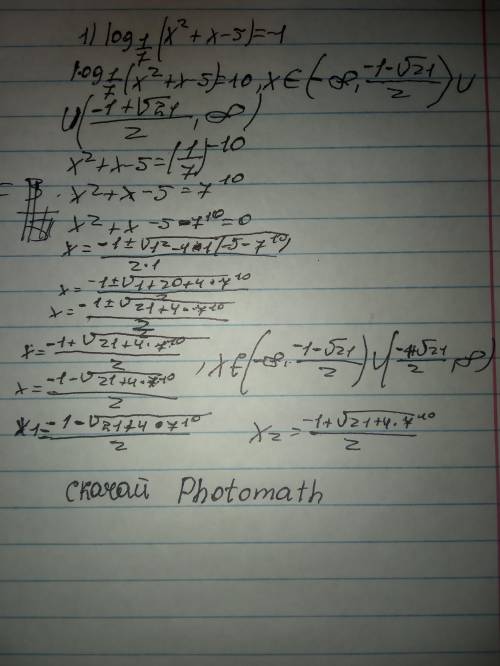 1) log 1/7 (x² + x - 5) = -1
log 1/7 (x² + x - 5) = 10, x ∈ (-∞, (-1-√21)/2) ∪
∪ ((-1+√21)/2, ∞)
x² + x - 5 = (1/7)^-10
x² + x - 5 = 7^10
x² + x - 5 - 7^10 = 0
x = (-1 ± √(1² - 4 · 1(-5 - 7^10)))/(2 · 1)
x = (-1 ± √(1 + 20 + 4 · 7^10))/2
x = (-1 ± √(21 + 4 · 7^10))/2
x = (-1 + √(21 + 4 · 7^10))/2
x = (-1 - √(21 + 4 · 7^10))/2 , x ∈ (-∞, (-1-√21)/2) ∪ ((-1+√21)/2, ∞)
x₁ = (-1 - √(21 + 4 · 7^10))/2 x₂ = (-1 + √(21 + 4 · 7^10))/2
скачай Photomath